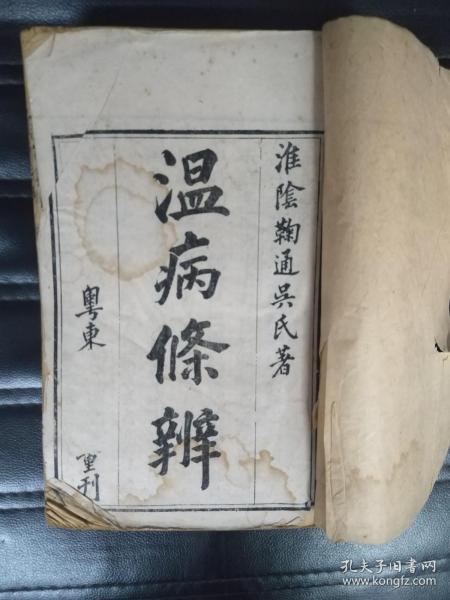 淮陰鞠通吳氏著
温病條辨
粵東
重刊
孔夫子旧书网
www.kongfz.com